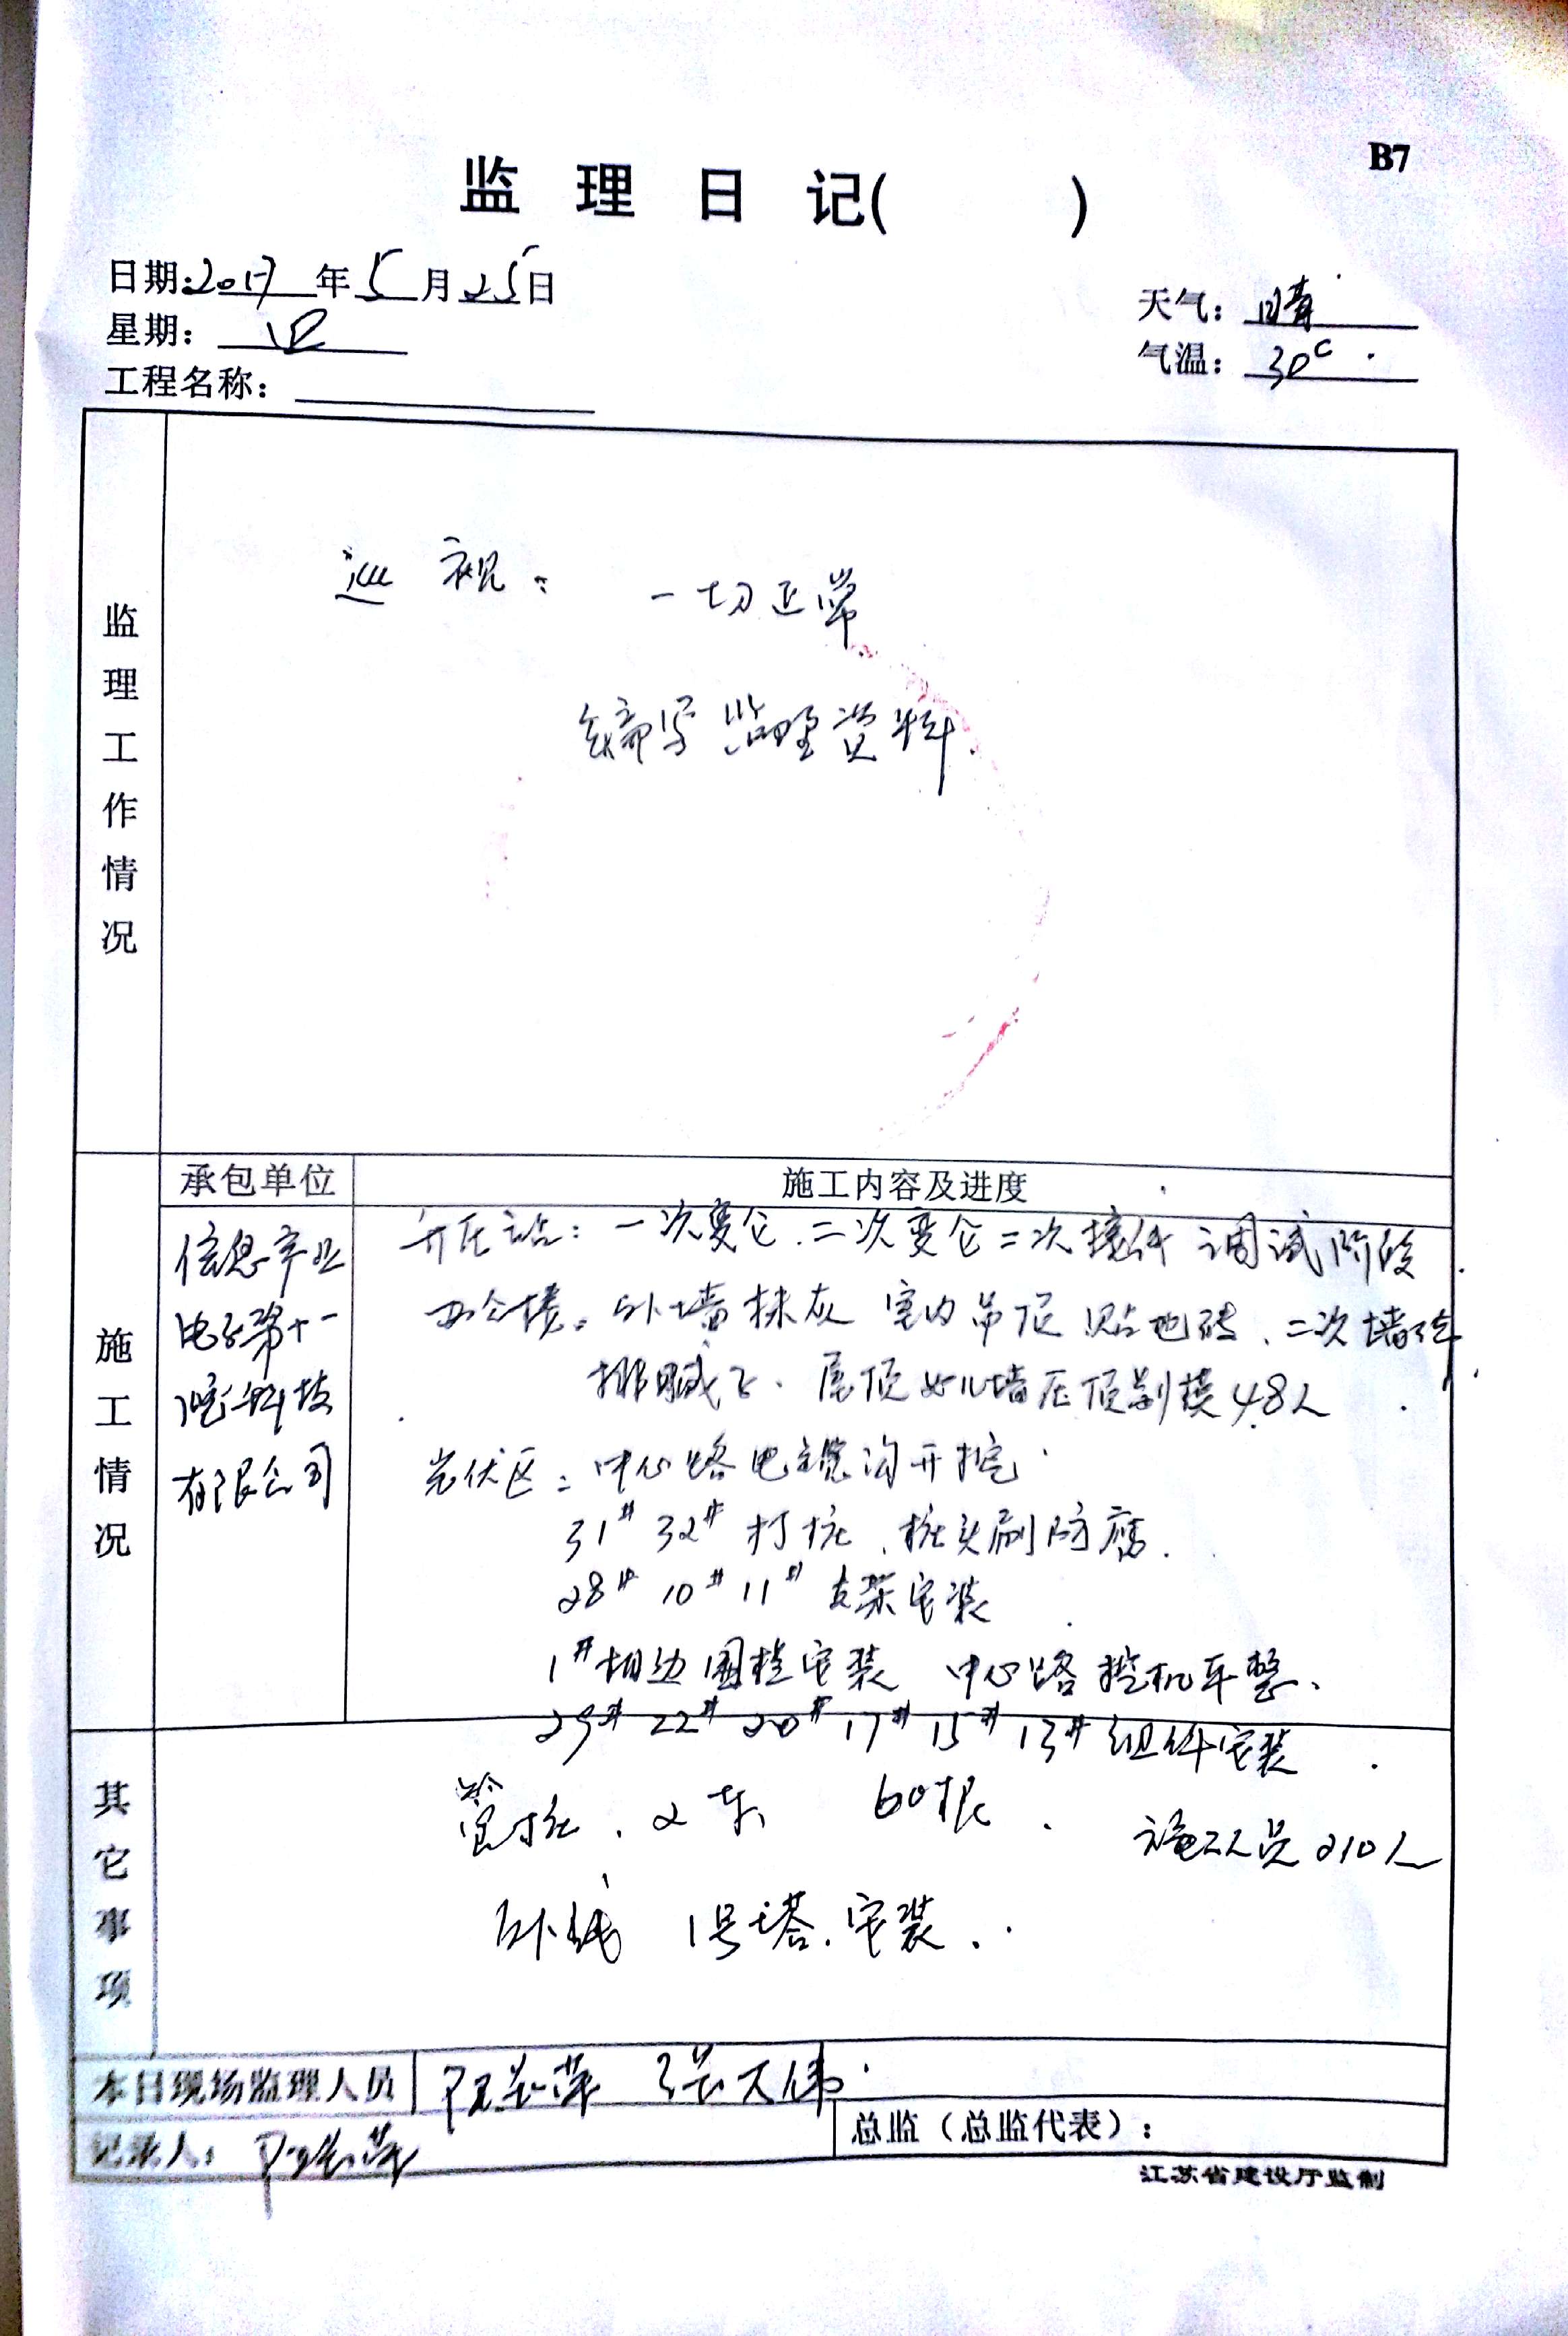 B7
监 理 日 记( )
日期:2017年5月25日
天气：晴
星期：四
气温：30℃
工程名称：
监理工作情况
巡视： 一切正常
编写监理资料.
施工情况
承包单位
施工内容及进度
信息产业
电子第十一
科技
有限公司
升压站：一次变仓.二次变仓二次接件 调试阶段.
办公楼。外墙抹灰 室内吊顶 贴地砖、二次墙
腻子、屋顶女儿墙压顶 模48人
光伏区：中心路电缆沟开挖
31# 32# 打桩、桩头刷防腐.
28# 10# 11# 支架安装
1#相边围栏安装 中心路挖机平整、
29# 22# 20# 17# 15# 13# 组件安装
其它事项
管桩、2车 60根.
施工人员210人
外线 1号塔.安装.
本日现场监理人员
张天伟
记录人：
总监（总监代表）：
江苏省建设厅监制